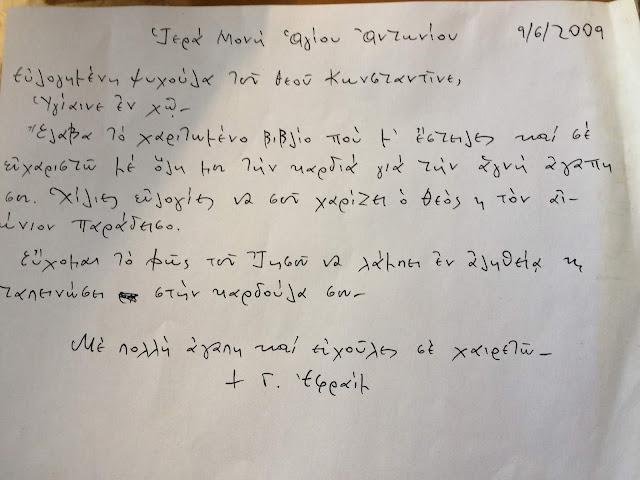 Ἱερά Μονή Ἁγίου Ἀντωνίου 9/6/2009
Εὐλογημένη ψυχούλα τοῦ Θεοῦ Κωνσταντῖνε,
Ὑγίαινε ἐν Χῷ –
Ἔλαβα τό χαριτωμένο βιβλίο πού μ' ἔστειλες καί σέ
εὐχαριστῶ μέ ὅλη μου τήν καρδιά γιά τήν ἁγνή ἀγάπη
σου. Χίλιες εὐλογίες νά σοῦ χαρίζει ὁ Θεός κ τὸν αἰ-
ώνιον παράδεισο.
Εὔχομαι τό φῶς τοῦ Ἰησοῦ νά λάμπει ἐν ἀληθείᾳ κ
ταπεινώσει στήν καρδούλα σου –
Μέ πολλή ἀγάπη καί εὐχοῦλες σέ χαιρετῶ –
+ Γ. Ἐφραίμ